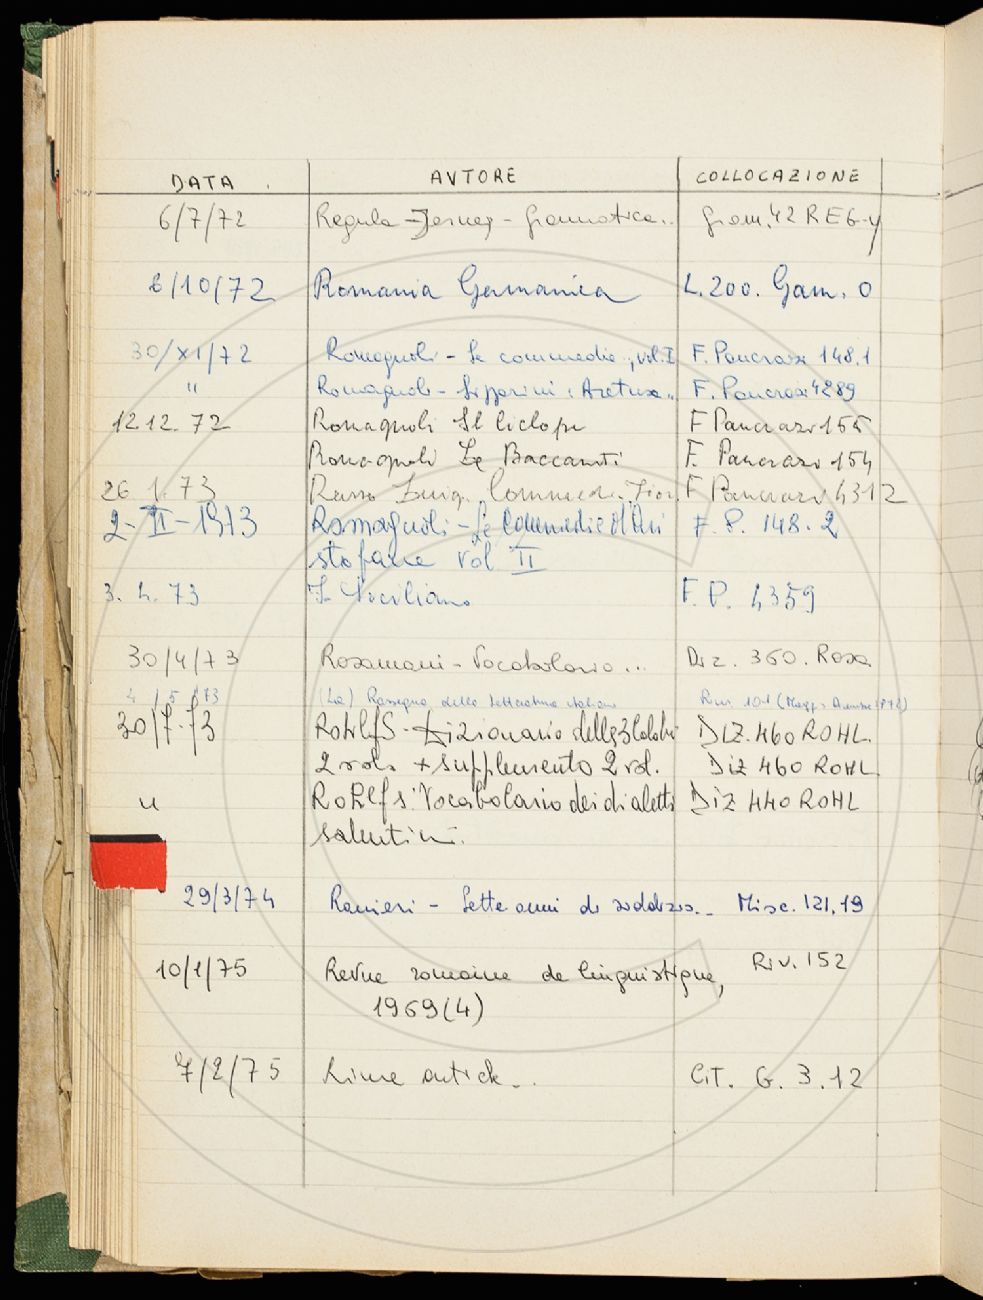 DATA AVTORE COLLOCAZIONE
6/7/72 Regula - Jernej - Grammatica.. Gram. 42 REG-y
6/10/72 Romania Germanica L. 200. Gam. 0
30/XI/72 Romagnoli - Le commedie., vol. I F. Pancrazi 148.1
" Romagnoli - : Aretusa.. F. Pancrazi 4289
12 12. 72 Romagnoli Il Ciclope F Pancrazi 155
Romagnoli Le Baccanti F. Pancrazi 154
26 1. 73 Russo Luigi F Pancrazi 4312
2-II-1973 Romagnoli - Le Commedie d'Ari F. P. 148. 2
stofane Vol II
3. 4. 73 Siciliano F. P. 4359
30/4/73 Rosamani - Vocabolario... Diz. 360. Rosa
4 / 5 / 73 (La) Rassegna della letteratura italiana Riv. 101
30/7-73 Rohlfs - Dizionario delle 3 Calabrie DIZ. 460 ROHL.
2 vols + supplemento 2 vol. Diz 460 ROHL
" Rohlfs: Vocabolario dei dialetti Diz 440 ROHL
salentini.
29/3/74 Ranieri - Sette anni di sodalizio.. Misc. 121. 19
10/1/75 Revue romaine de linguistique, Riv. 152
1969(4)
7/2/75 Rime antich... CIT. G. 3. 12